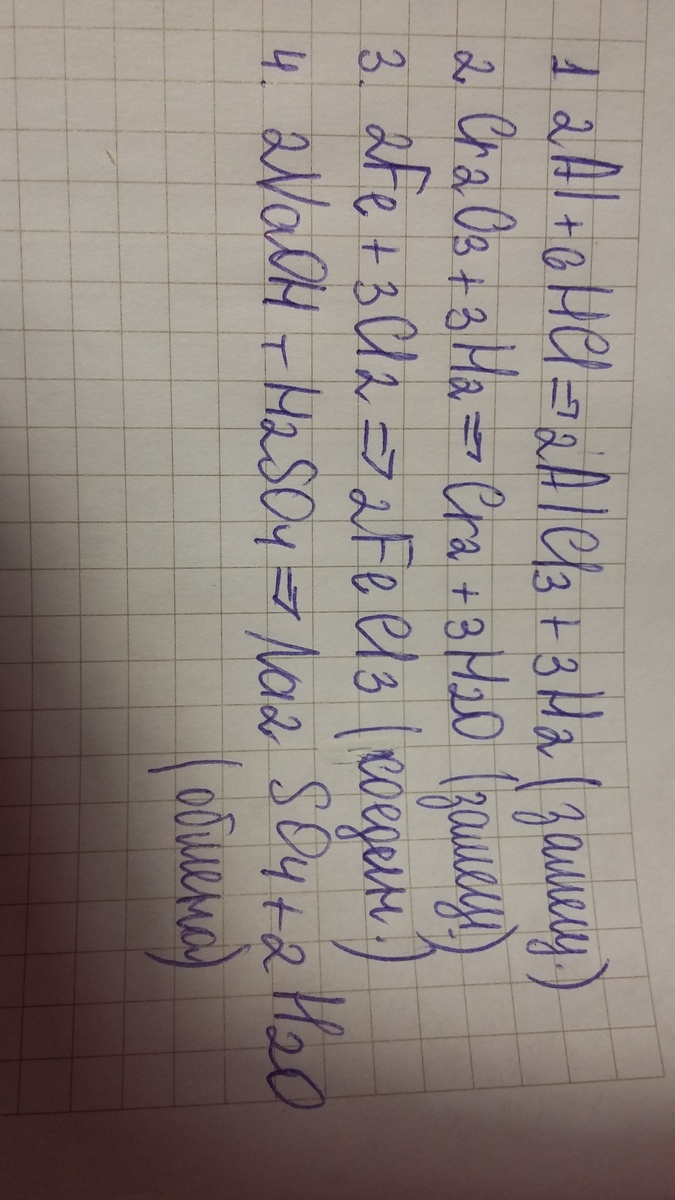 1 2Al + 6HCl => 2AlCl3 + 3H2 (замещ.)
2 Cr2O3 + 3H2 => Cr2 + 3H2O (замещ.)
3. 2Fe + 3Cl2 => 2FeCl3 (соедин.)
4. 2NaOH + H2SO4 => Na2SO4 + 2H2O
(обмена)